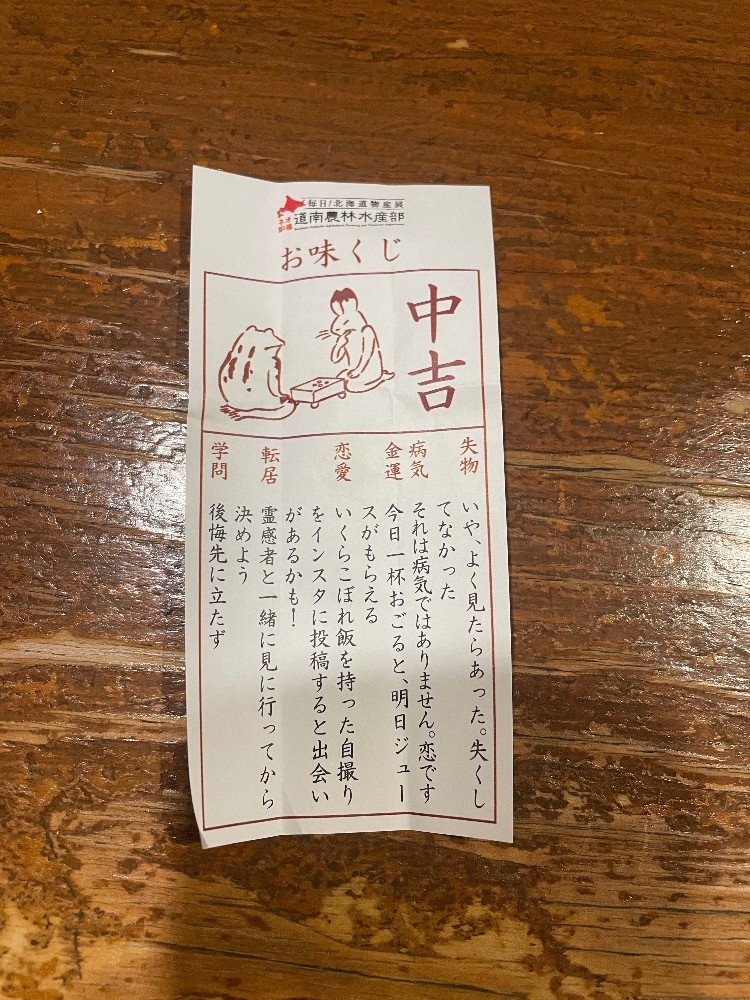 毎日!北海道物産展
ネオ炉端
道南農林水産部
お味くじ
中吉
失物
いや、よく見たらあった。失くし
てなかった
病気
それは病気ではありません。恋です
金運
今日一杯おごると、明日ジュー
スがもらえる
恋愛
いくらこぼれ飯を持った自撮り
をインスタに投稿すると出会い
があるかも!
転居
霊感者と一緒に見に行ってから
決めよう
学問
後悔先に立たず